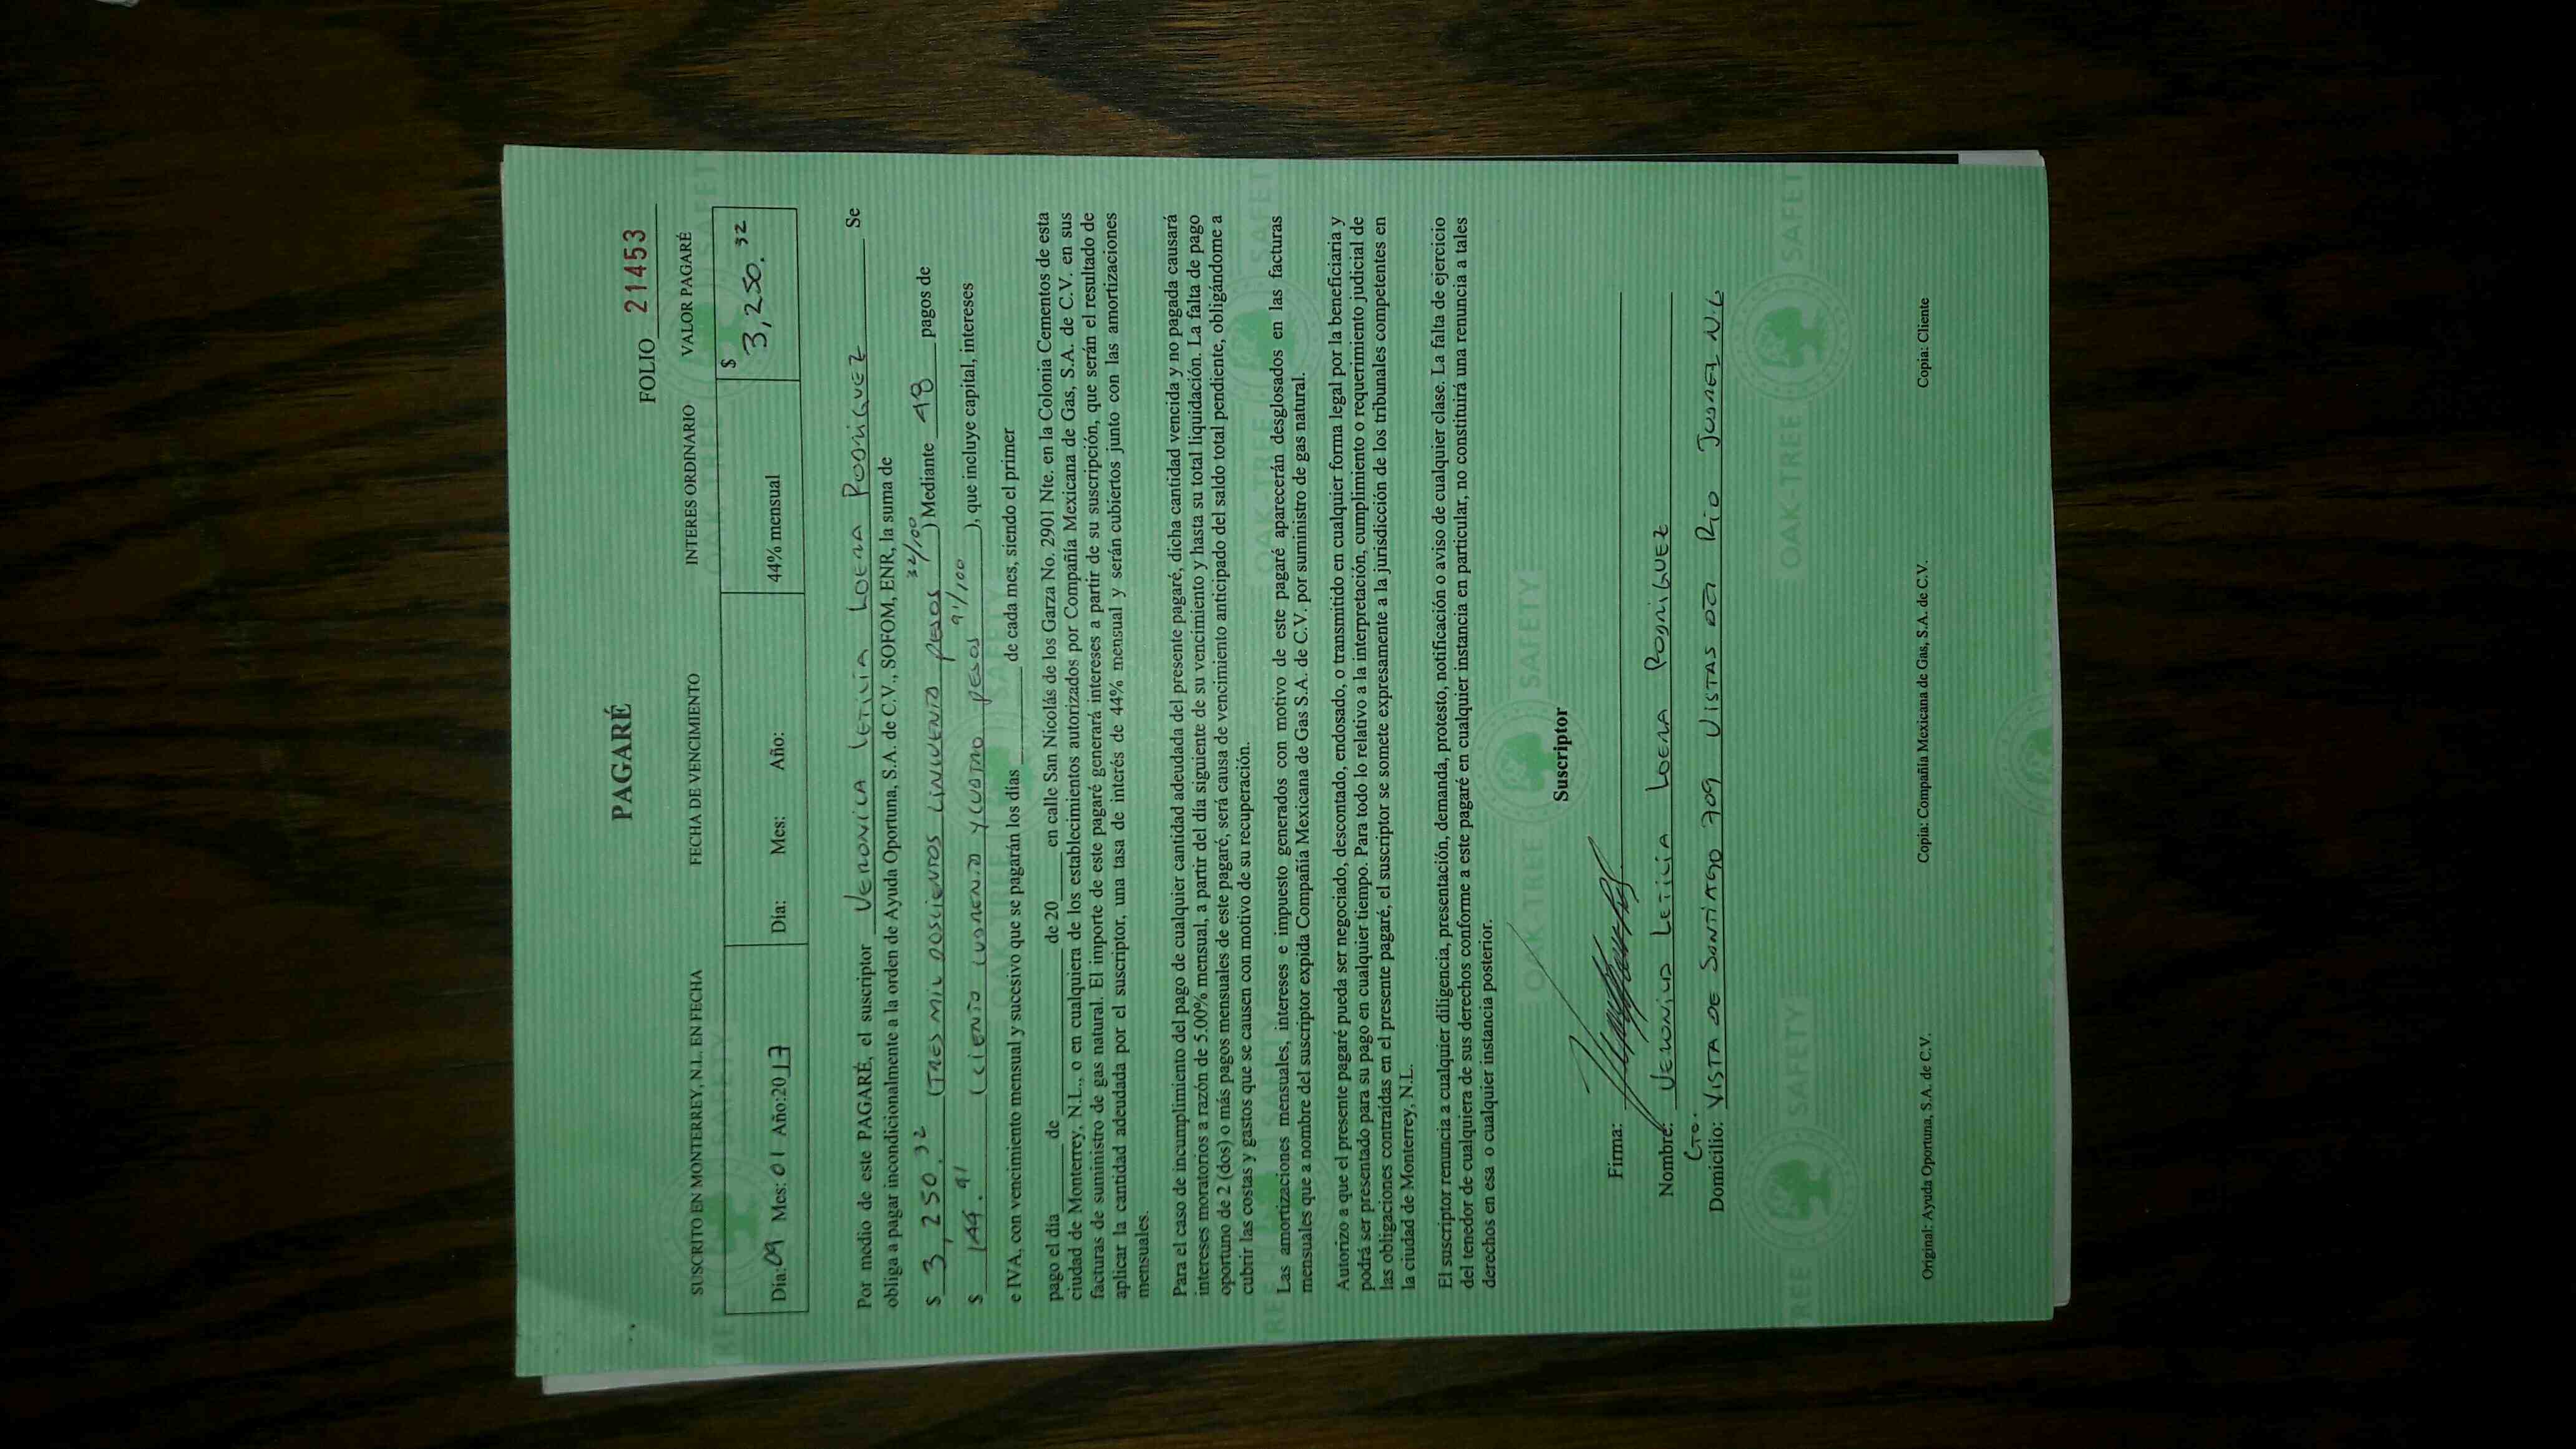 PAGARÉ
FOLIO 21453
SUSCRITO EN MONTERREY, N.L. EN FECHA FECHA DE VENCIMIENTO INTERES ORDINARIO VALOR PAGARÉ
Día: 09 Mes: 01 Año:2017 Día: Mes: Año: 44% mensual $ 3,250.32
Por medio de este PAGARÉ, el suscriptor VERONICA LETICIA LOERA RODRIGUEZ Se
obliga a pagar incondicionalmente a la orden de Ayuda Oportuna, S.A. de C.V., SOFOM, ENR, la suma de
$ 3,250.32 (TRES MIL DOSCIENTOS CINCUENTA PESOS 32/100 ) Mediante 48 pagos de
$ 144.91 (CIENTO CUARENTA Y CUATRO PESOS 91/100 ), que incluye capital, intereses
e IVA, con vencimiento mensual y sucesivo que se pagarán los días de cada mes, siendo el primer
pago el día de de 20 en calle San Nicolás de los Garza No. 2901 Nte. en la Colonia Cementos de esta
ciudad de Monterrey, N.L., o en cualquiera de los establecimientos autorizados por Compañía Mexicana de Gas, S.A. de C.V. en sus
facturas de suministro de gas natural. El importe de este pagaré generará intereses a partir de su suscripción, que serán el resultado de
aplicar la cantidad adeudada por el suscriptor, una tasa de interés de 44% mensual y serán cubiertos junto con las amortizaciones
mensuales.
Para el caso de incumplimiento del pago de cualquier cantidad adeudada del presente pagaré, dicha cantidad vencida y no pagada causará
intereses moratorios a razón de 5.00% mensual, a partir del día siguiente de su vencimiento y hasta su total liquidación. La falta de pago
oportuno de 2 (dos) o más pagos mensuales de este pagaré, será causa de vencimiento anticipado del saldo total pendiente, obligándome a
cubrir las costas y gastos que se causen con motivo de su recuperación.
Las amortizaciones mensuales, intereses e impuesto generados con motivo de este pagaré aparecerán desglosados en las facturas
mensuales que a nombre del suscriptor expida Compañía Mexicana de Gas S.A. de C.V. por suministro de gas natural.
Autorizo a que el presente pagaré pueda ser negociado, descontado, endosado, o transmitido en cualquier forma legal por la beneficiaria y
podrá ser presentado para su pago en cualquier tiempo. Para todo lo relativo a la interpretación, cumplimiento o requerimiento judicial de
las obligaciones contraídas en el presente pagaré, el suscriptor se somete expresamente a la jurisdicción de los tribunales competentes en
la ciudad de Monterrey, N.L.
El suscriptor renuncia a cualquier diligencia, presentación, demanda, protesto, notificación o aviso de cualquier clase. La falta de ejercicio
del tenedor de cualquiera de sus derechos conforme a este pagaré en cualquier instancia en particular, no constituirá una renuncia a tales
derechos en esa o cualquier instancia posterior.
Suscriptor
Firma:
Nombre: VERONICA LETICIA LOERA RODRIGUEZ
CTO.
Domicilio: VISTA DE SANTIAGO 709 VISTAS DEL RIO JUAREZ N.L
Original: Ayuda Oportuna, S.A. de C.V. Copia: Compañía Mexicana de Gas, S.A. de C.V. Copia: Cliente
OAK-TREE SAFETY